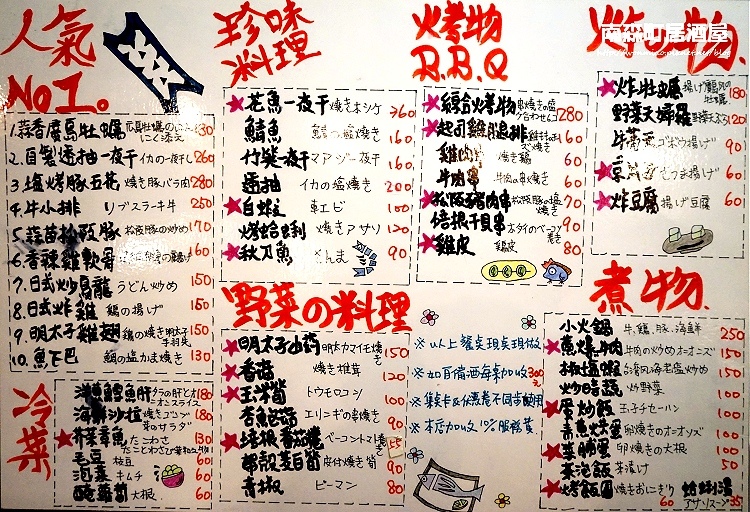 南森町居酒屋
人氣
No1。
1.蒜香廣島牡蠣 130
2.自製透抽一夜干 イカの一夜干し 260
3.塩烤豚五花 焼き豚バラ肉 280
4.牛小排 リブステーキ牛 250
5.蒜苗松阪豚 松阪豚の炒め 170
6.香辣雞軟骨 160
7.日式炒烏龍 うどん炒め 150
8.日式炸雞 鶏の揚げ 150
9.明太子雞翅 鶏の焼き明太子手羽先 150
10.魚下巴 鯛の塩かま焼き 130
珍味
料理
花魚一夜干 焼きホッケ 360
鯖魚 160
竹筴一夜干 マアジ一夜干 160
透抽 イカの塩焼き 200
白蝦 車エビ 100
烤蛤蜊 焼きアサリ 120
秋刀魚 さんま 90
燒烤物
B.B.Q
綜合烤物 280
起司雞腿排 160
雞肉串 焼き鶏 60
牛肉串 牛肉の串焼き 60
松阪豬肉串 松阪豚の塩焼き 70
培根干貝串 90
雞皮 鶏皮 80
炸牡蠣 180
野菜天婦羅 野菜天ぷら 120
牛蒡 ゴボウ揚げ 90
さつま揚げ 60
炸豆腐 揚げ豆腐 60
野菜の料理
明太子山藥 150
香菇 焼き椎茸 120
玉米筍 トウモロコシ 100
杏鮑菇 エリンギの串焼き 90
培根番茄捲 ベーコントマト巻き
帶殼茭白筍 皮付焼き筍 90
青椒 ピーマン 80
※以上餐点現点現做
※如自備酒每桌加收300元
※集点卡&优惠卷不同時使用
※本店加收10%服務費
煮物
小火鍋 牛、鶏、豚、海鮮 250
蔥爆牛肉 牛肉の炒めオニオンズ 150
椒塩鹹酥 150
炒時蔬 炒野菜 100
蛋炒飯 玉子チャーハン 100
卵焼きのオニオンズ 100
菜脯蛋 卵焼きの大根 100
茶泡飯 茶漬け 50
烤飯糰 焼きおにぎり 60
蛤蜊湯 アサリスープ 35
冷菜
洋蔥鱈魚肝 タラの肝とオニオンスライス 180
海鮮沙拉 180
芥茉章魚 たこわさ 130
毛豆 枝豆 60
泡菜 キムチ 60
醃蘿蔔 大根 60